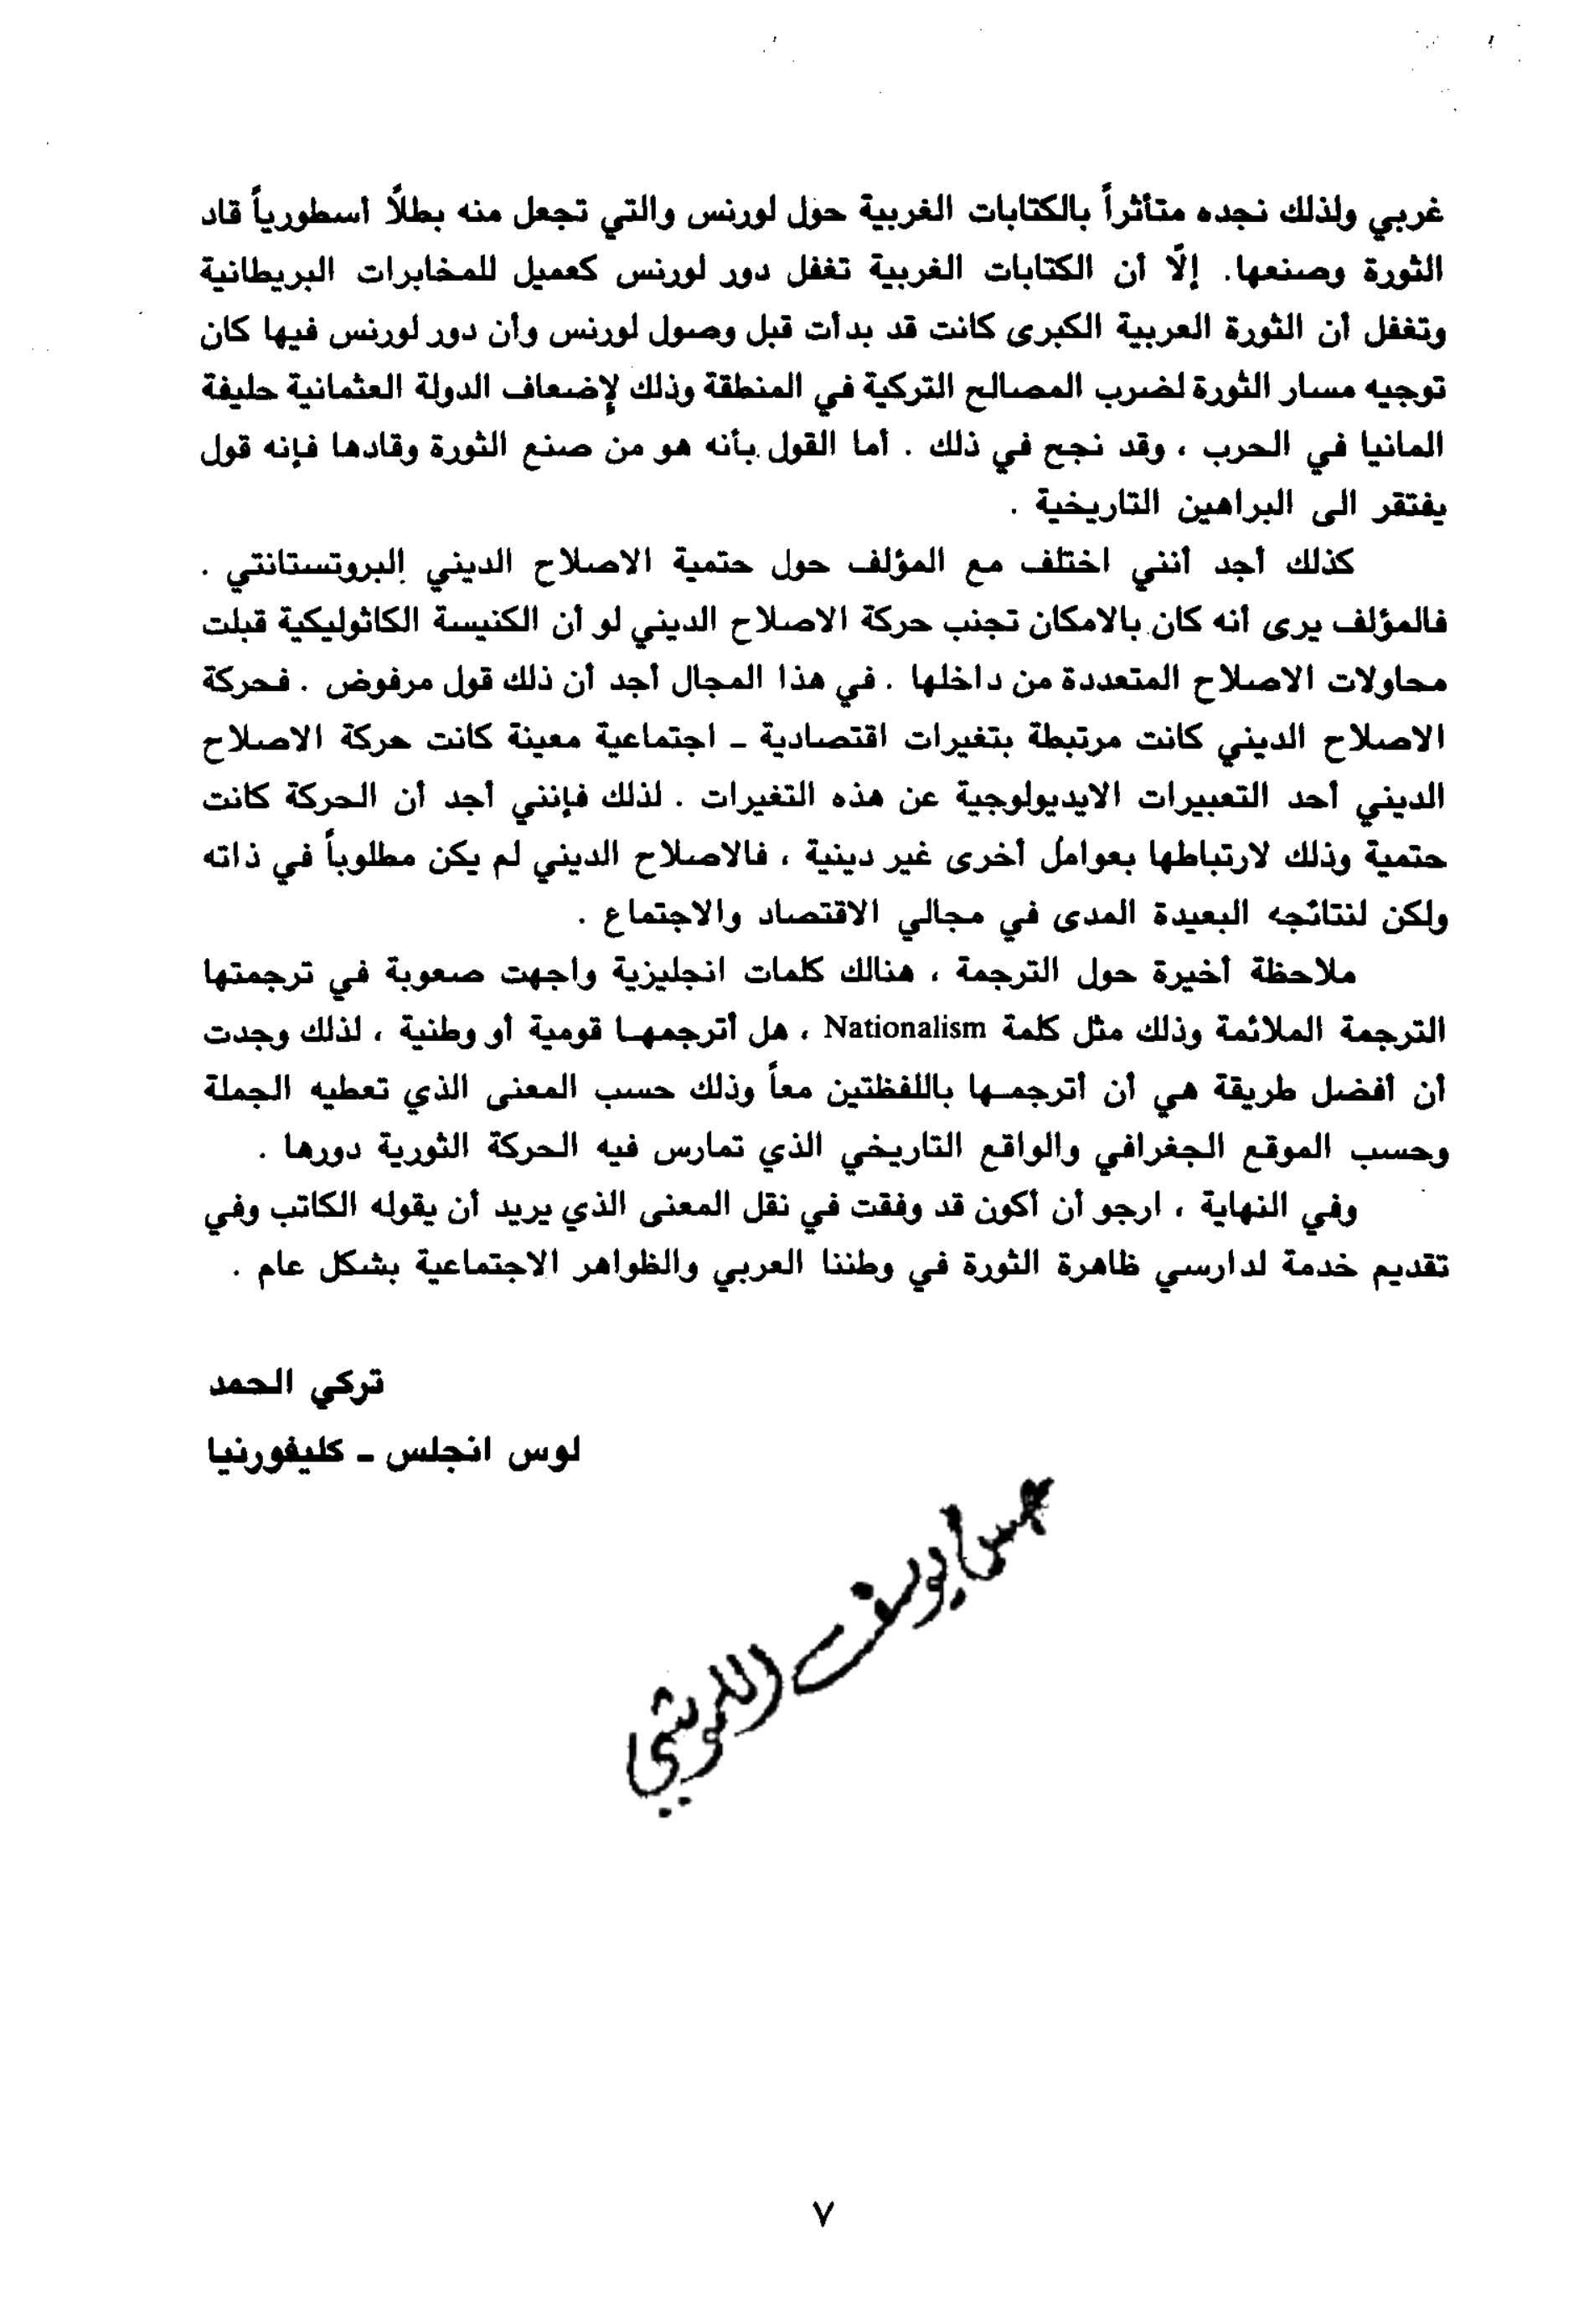 غربي ولذلك نجده متأثراً بالكتابات الغربية حول لورنس والتي تجعل منه بطلاً أسطورياً قاد
الثورة وصنعها. إلّا أن الكتابات الغربية تغفل دور لورنس كعميل للمخابرات البريطانية
وتغفل أن الثورة العربية الكبرى كانت قد بدأت قبل وصول لورنس وأن دور لورنس فيها كان
توجيه مسار الثورة لضرب المصالح التركية في المنطقة وذلك لإضعاف الدولة العثمانية حليفة
المانيا في الحرب ، وقد نجح في ذلك . أما القول بأنه هو من صنع الثورة وقادها فإنه قول
يفتقر الى البراهين التاريخية .
كذلك أجد أنني اختلف مع المؤلف حول حتمية الاصلاح الديني البروتستانتي .
فالمؤلف يرى أنه كان بالامكان تجنب حركة الاصلاح الديني لو أن الكنيسة الكاثوليكية قبلت
محاولات الاصلاح المتعددة من داخلها . في هذا المجال أجد أن ذلك قول مرفوض . فحركة
الاصلاح الديني كانت مرتبطة بتغيرات اقتصادية - اجتماعية معينة كانت حركة الاصلاح
الديني أحد التعبيرات الايديولوجية عن هذه التغيرات . لذلك فإنني أجد أن الحركة كانت
حتمية وذلك لارتباطها بعوامل أخرى غير دينية ، فالاصلاح الديني لم يكن مطلوباً في ذاته
ولكن لنتائجه البعيدة المدى في مجالي الاقتصاد والاجتماع .
ملاحظة أخيرة حول الترجمة ، هنالك كلمات انجليزية واجهت صعوبة في ترجمتها
الترجمة الملائمة وذلك مثل كلمة Nationalism ، هل أترجمها قومية أو وطنية ، لذلك وجدت
أن أفضل طريقة هي أن أترجمها باللفظتين معاً وذلك حسب المعنى الذي تعطيه الجملة
وحسب الموقع الجغرافي والواقع التاريخي الذي تمارس فيه الحركة الثورية دورها .
وفي النهاية ، ارجو أن أكون قد وفقت في نقل المعنى الذي يريد أن يقوله الكاتب وفي
تقديم خدمة لدارسي ظاهرة الثورة في وطننا العربي والظواهر الاجتماعية بشكل عام .
تركي الحمد
لوس انجلس - كليفورنيا
يوسف
٧